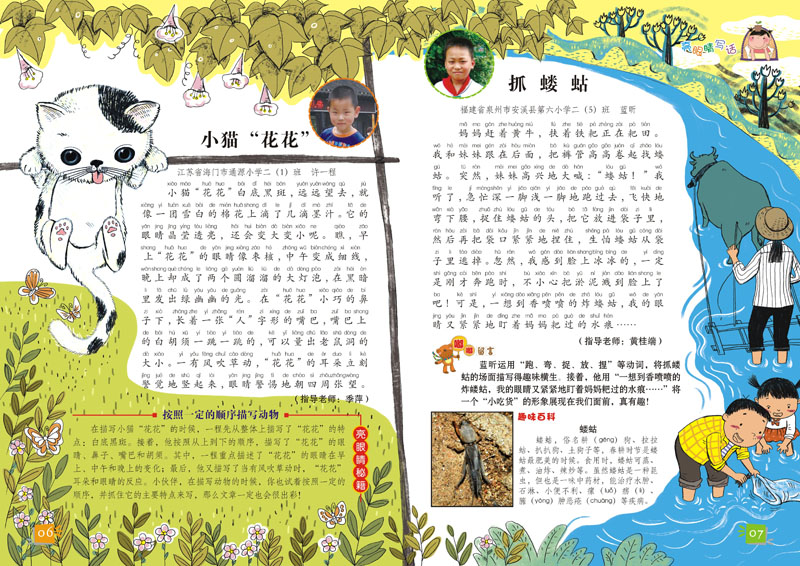 小猫“花花”
江苏省海门市通源小学二（1）班 许一程
小猫“花花”白底黑斑，远远望去，就
像一团雪白的棉花上滴了几滴墨汁。它的
眼睛晶莹透亮，还会变大变小呢。瞧，早
上“花花”的眼睛像枣核，中午变成细线，
晚上却成了两个圆溜溜的大灯泡，在黑暗
里发出绿幽幽的光。在“花花”小巧的鼻
子下，长着一张“人”字形的嘴巴，嘴巴上
的白胡须一跳一跳的，可以量出老鼠洞的
大小。一有风吹草动，“花花”的耳朵立刻
警觉地竖起来，眼睛警惕地朝四周张望。
（指导老师：季萍）
按照一定的顺序描写动物
在描写小猫“花花”的时候，一程先从整体上描写了“花花”的特
点：白底黑斑。接着，他按照从上到下的顺序，描写了“花花”的眼
睛、鼻子、嘴巴和胡须。其中，一程重点描述了“花花”的眼睛在早
上、中午和晚上的变化；最后，他又描写了当有风吹草动时，“花花”
耳朵和眼睛的反应。小伙伴，在描写动物的时候，你也试着按照一定的
顺序，并抓住它的主要特点来写，那么文章一定也会很出彩！
亮眼睛秘籍
06
亮眼睛写话
抓蝼蛄
福建省泉州市安溪县第六小学二（5）班 蓝昕
妈妈赶着黄牛，扶着铁耙正在耙田。
我和妹妹跟在后面，把裤管高高卷起找蝼
蛄。突然，妹妹高兴地大喊：“蝼蛄！”我
听了，急忙深一脚浅一脚地跑过去，飞快地
弯下腰，捉住蝼蛄的头，把它放进袋子里，
然后再把袋口紧紧地捏住，生怕蝼蛄从袋
子里逃掉。忽然，我感到脸上冰冰的，一定
是刚才奔跑时，不小心把淤泥溅到脸上了
吧！可是，一想到香喷喷的炸蝼蛄，我的眼
睛又紧紧地盯着妈妈耙过的水痕……
（指导老师：黄桂端）
嘟嘟留言
蓝昕运用“跑、弯、捉、放、捏”等动词，将抓蝼
蛄的场面描写得趣味横生。接着，他用“一想到香喷喷的
炸蝼蛄，我的眼睛又紧紧地盯着妈妈耙过的水痕……”将
一个“小吃货”的形象展现在我们面前，真有趣！
趣味百科
蝼蛄
蝼蛄，俗名耕（gēng）狗、拉拉
蛄、扒扒狗、土狗子等，春耕时节是蝼
蛄最肥美的时候。食用时，蝼蛄可蒸、
煮、油炸、辣炒等。虽然蝼蛄是一种昆
虫，但也是一味中药材，能治疗水肿、
石淋、小便不利、瘰（luǒ）疬（lì）、
痈（yōng）肿恶疮（chuāng）等疾病。
07